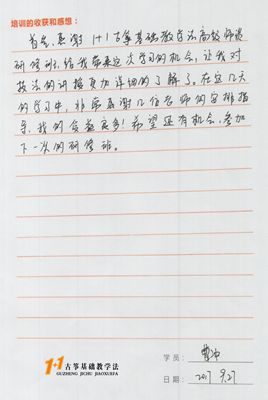 培训的收获和感想：
首先,感谢 1+1古筝基础教学法高级师资
研修班,给我带来这次学习的机会,让我对
技法的讲授更加详细的了解了。在这几天
的学习中,非常感谢几位老师的安排指
导,我的收益良多!希望还有机会,参加
下一次的研修班。
1+1 古筝基础教学法
GUZHENG JICHU JIAOXUEFA
学员：
日期： 2017 9.27